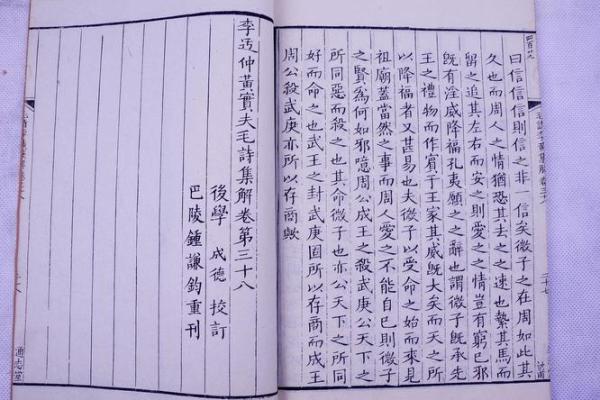 曰信信信則信之非一信矣微子之在周如此其
久也而周人之情猶恐其去之之速也縶其馬而
留之追其左右而安之則愛之之情豈有窮已邪
既有淫威降福孔夷願之之辭也謂微子既承先
王之禮物而作賓于王家其威既大矣而天之所
以降福者又甚易也夫微子以受命之始而來見
祖廟蓋當然之事而周人愛之不能自已則微子
之賢爲何如邪噫周公成王之殺武庚公天下之
所同惡而殺之也其命微子也亦公天下之所同
好而命之也武王之封武庚固所以存商而成王
周公殺武庚亦所以存商歟
李迃仲黃實夫毛詩集解卷第三十八
後學 成德 校訂
巴陵鍾謙鈞重刊
通志堂